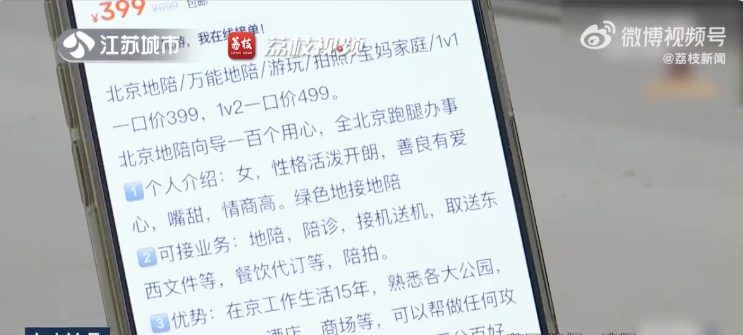 ¥399 ¥699 包邮
江苏城市
荔枝
荔枝视频
微博视频号
@荔枝新闻
,我在线接单!
北京地陪/万能地陪/游玩/拍照/宝妈家庭/1v1
一口价399,1v2一口价499。
北京地陪向导一百个用心,全北京跑腿办事
1个人介绍:女,性格活泼开朗,善良有爱
心,嘴甜,情商高。绿色地接地陪
2可接业务:地陪,陪诊,接机送机,取送东
西文件等,餐饮代订等,陪拍。
3优势:在京工作生活15年,熟悉各大公园,
酒店、商场等,可以帮做任何攻